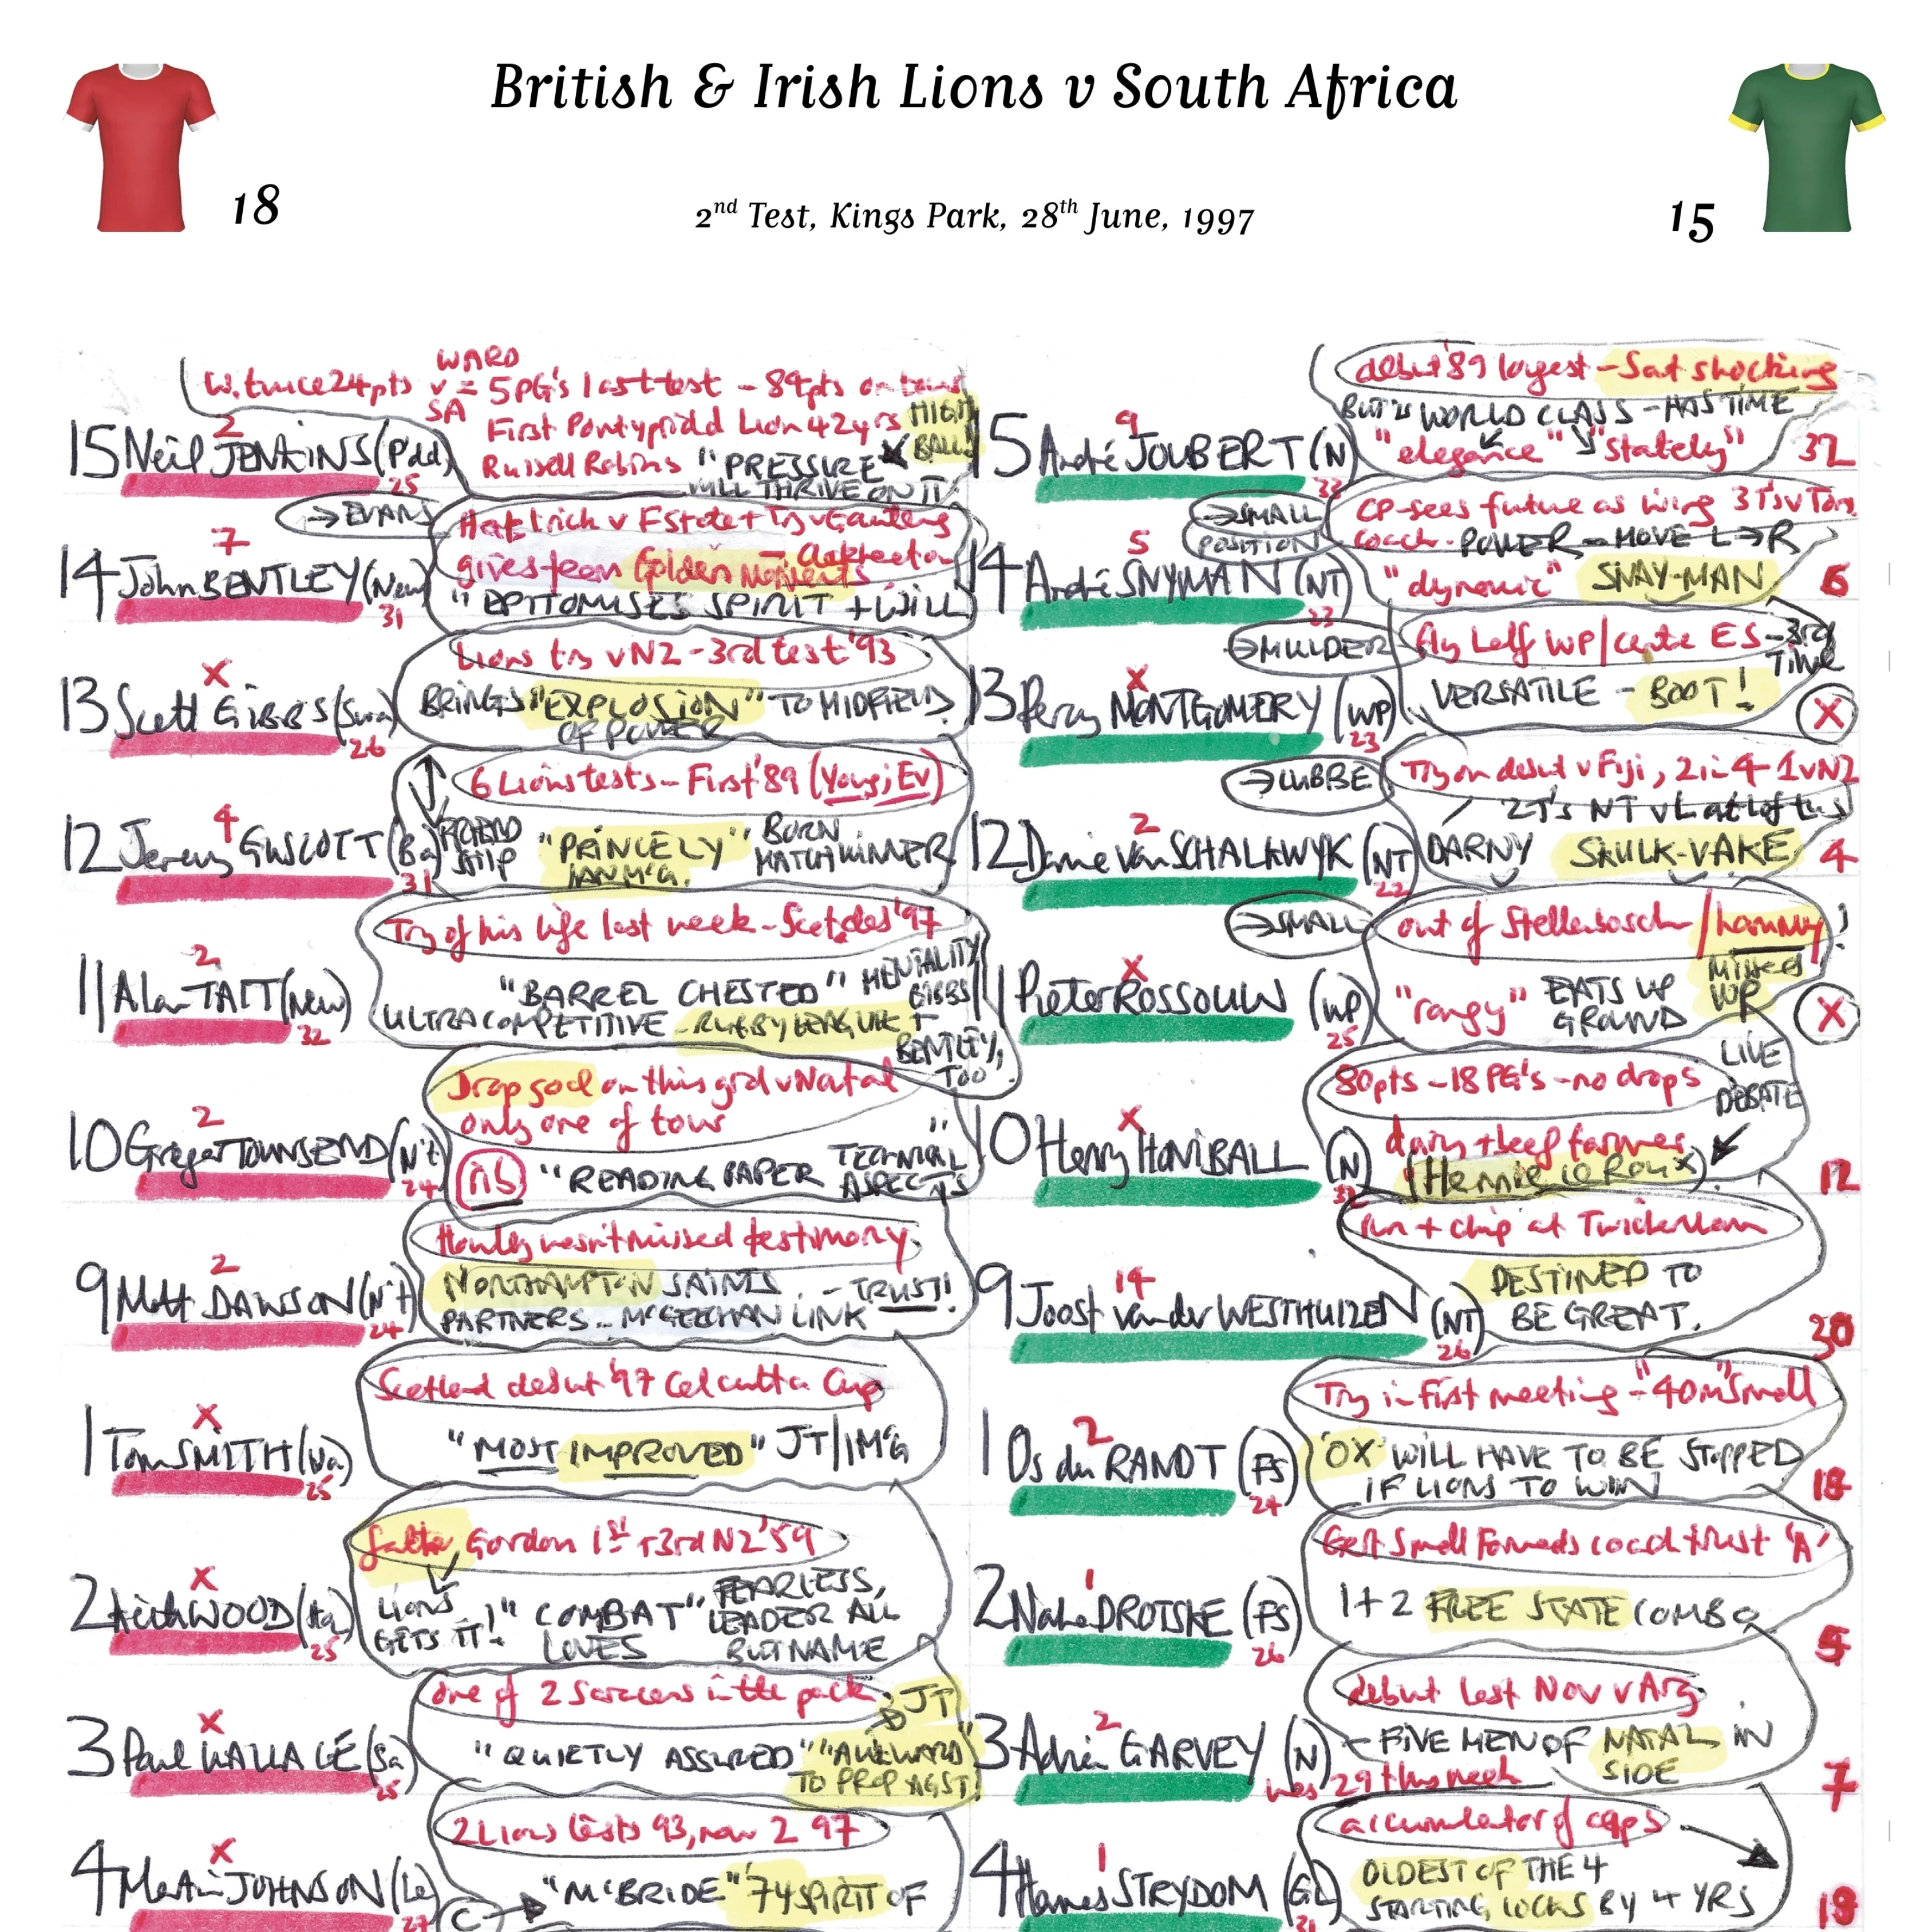 British & Irish Lions v South Africa
18
2nd Test, Kings Park, 28th June, 1997
15
WARD
W. twice 24pts v = 5PG's last test - 84pts on
SA
First Pontypridd Lion 42yrs
HIGH BALL!
2
15 Neil JENKINS (P'dd)
Russell Robins "PRESSURE"
25
WILL THRIVE ON IT
→ EVANS
Hat trick v FState + Try v Gauteng
7
gives team Golden Moments
14 John BENTLEY (New)
"EPITOMISES SPIRIT + WILL
31
Lions try v NZ - 3rd test '93
X
13 Scott GIBBS (Swa)
BRINGS "EXPLOSION" TO MIDFIELD
OF POWER
26
6 Lions tests - First '89 (Young; Ev)
4
12 Jeremy GUSCOTT (Ba)
FRIENDSHIP "PRINCELY" BORN MATCHWINNER
IAN McG.
31
Try of his life last week - Scot des '97
2
11 Alan TAIT (New)
"BARREL CHESTED" MENTALITY
ULTRA COMPETITIVE - RUGBY LEAGUE GIBBS +
BENTLEY, TOO
32
Drop goal on this grd v Natal
only one of tour
2
10 Gregor TOWNSEND (N't)
nb "READING PAPER TECHNICAL ASPECTS"
24
Howley hasn't missed testimony
2
9 Matt DAWSON (N't)
NORTHAMPTON SAINTS - TRUST!
PARTNERS - McGEECHAN LINK
24
Scotland debut '97 Calcutta Cup
X
1 Tom SMITH (Wa)
"MOST IMPROVED" JT/IMG
25
father Gordon 1st + 3rd NZ '59
X
2 Keith WOOD (Ha)
LIONS GETS IT! "COMBAT" LOVES
FEARLESS, LEADER ALL BUT NAME
25
One of 2 Saracens in the pack
JT
X
3 Paul WALLACE (Sa)
"QUIETLY ASSURED" "AWKWARD"
TO PROP AGST
25
2 Lions tests 93, now 2 97
X
4 Martin JOHNSON (Le)
C → "McBRIDE" '74 SPIRIT OF
27
debut '89 largest - Sat shocking
BUT IS WORLD CLASS - HAS TIME
9
15 André JOUBERT (N)
"elegance" "stately"
37
33
→ SMALL
POSITION
CP - sees future as wing 3T's v Ton
coach. POWER - MOVE L→R
5
14 André SNYMAN (NT)
"dynamic" SNAY-MAN
6
23
→ MULDER
fly half WP/centre ES - 3rd TIME
X
13 Percy MONTGOMERY (WP)
VERSATILE - BOOT!
X
23
→ LUBBE
Try on debut v Fiji, 2 in 4 - 1 v NZ
2T's NT v L at Loftus
2
12 Danie van SCHALKWYK (NT)
DARNY SKULK-VAKE
4
22
→ SMALL
out of Stellenbosch / hammy!
MISSED WP
X
11 Pieter ROSSOUW (WP)
"rangy" EATS UP GROUND
X
25
80pts - 18 PG's - no drops
LIVE DEBATE
X
10 Henry HONIBALL (N)
dairy + beef farmer
(Hennie le Roux)
12
run + chip at Twickenham
14
9 Joost van der WESTHUIZEN (NT)
DESTINED TO
BE GREAT.
30
26
Try in first meeting - "40m" Small
2
1 Os du RANDT (FS)
'OX' WILL HAVE TO BE STOPPED
IF LIONS TO WIN
18
24
Gert Small Forwards coach trust 'A'
1
2 Naka DROTSKE (FS)
1+2 FREE STATE COMBO
5
26
debut last Nov v Arg
2
3 Adrian GARVEY (N)
- FIVE MEN OF NATAL IN SIDE
was 29 this week
7
accumulator of caps
1
4 Hannes STRYDOM (GL)
OLDEST OF THE 4
STARTING LOCKS BY 4 YRS
18
31